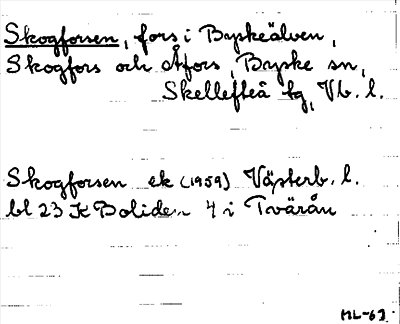 Skogforsen, fors i Byskeälven,
Skogfors och Åfors, Byske sn,
Skellefteå tg, Vb. l.
Skogforsen ek (1959) Västerb. l.
bl 23 K Boliden 4 i Tvärån
ML-63